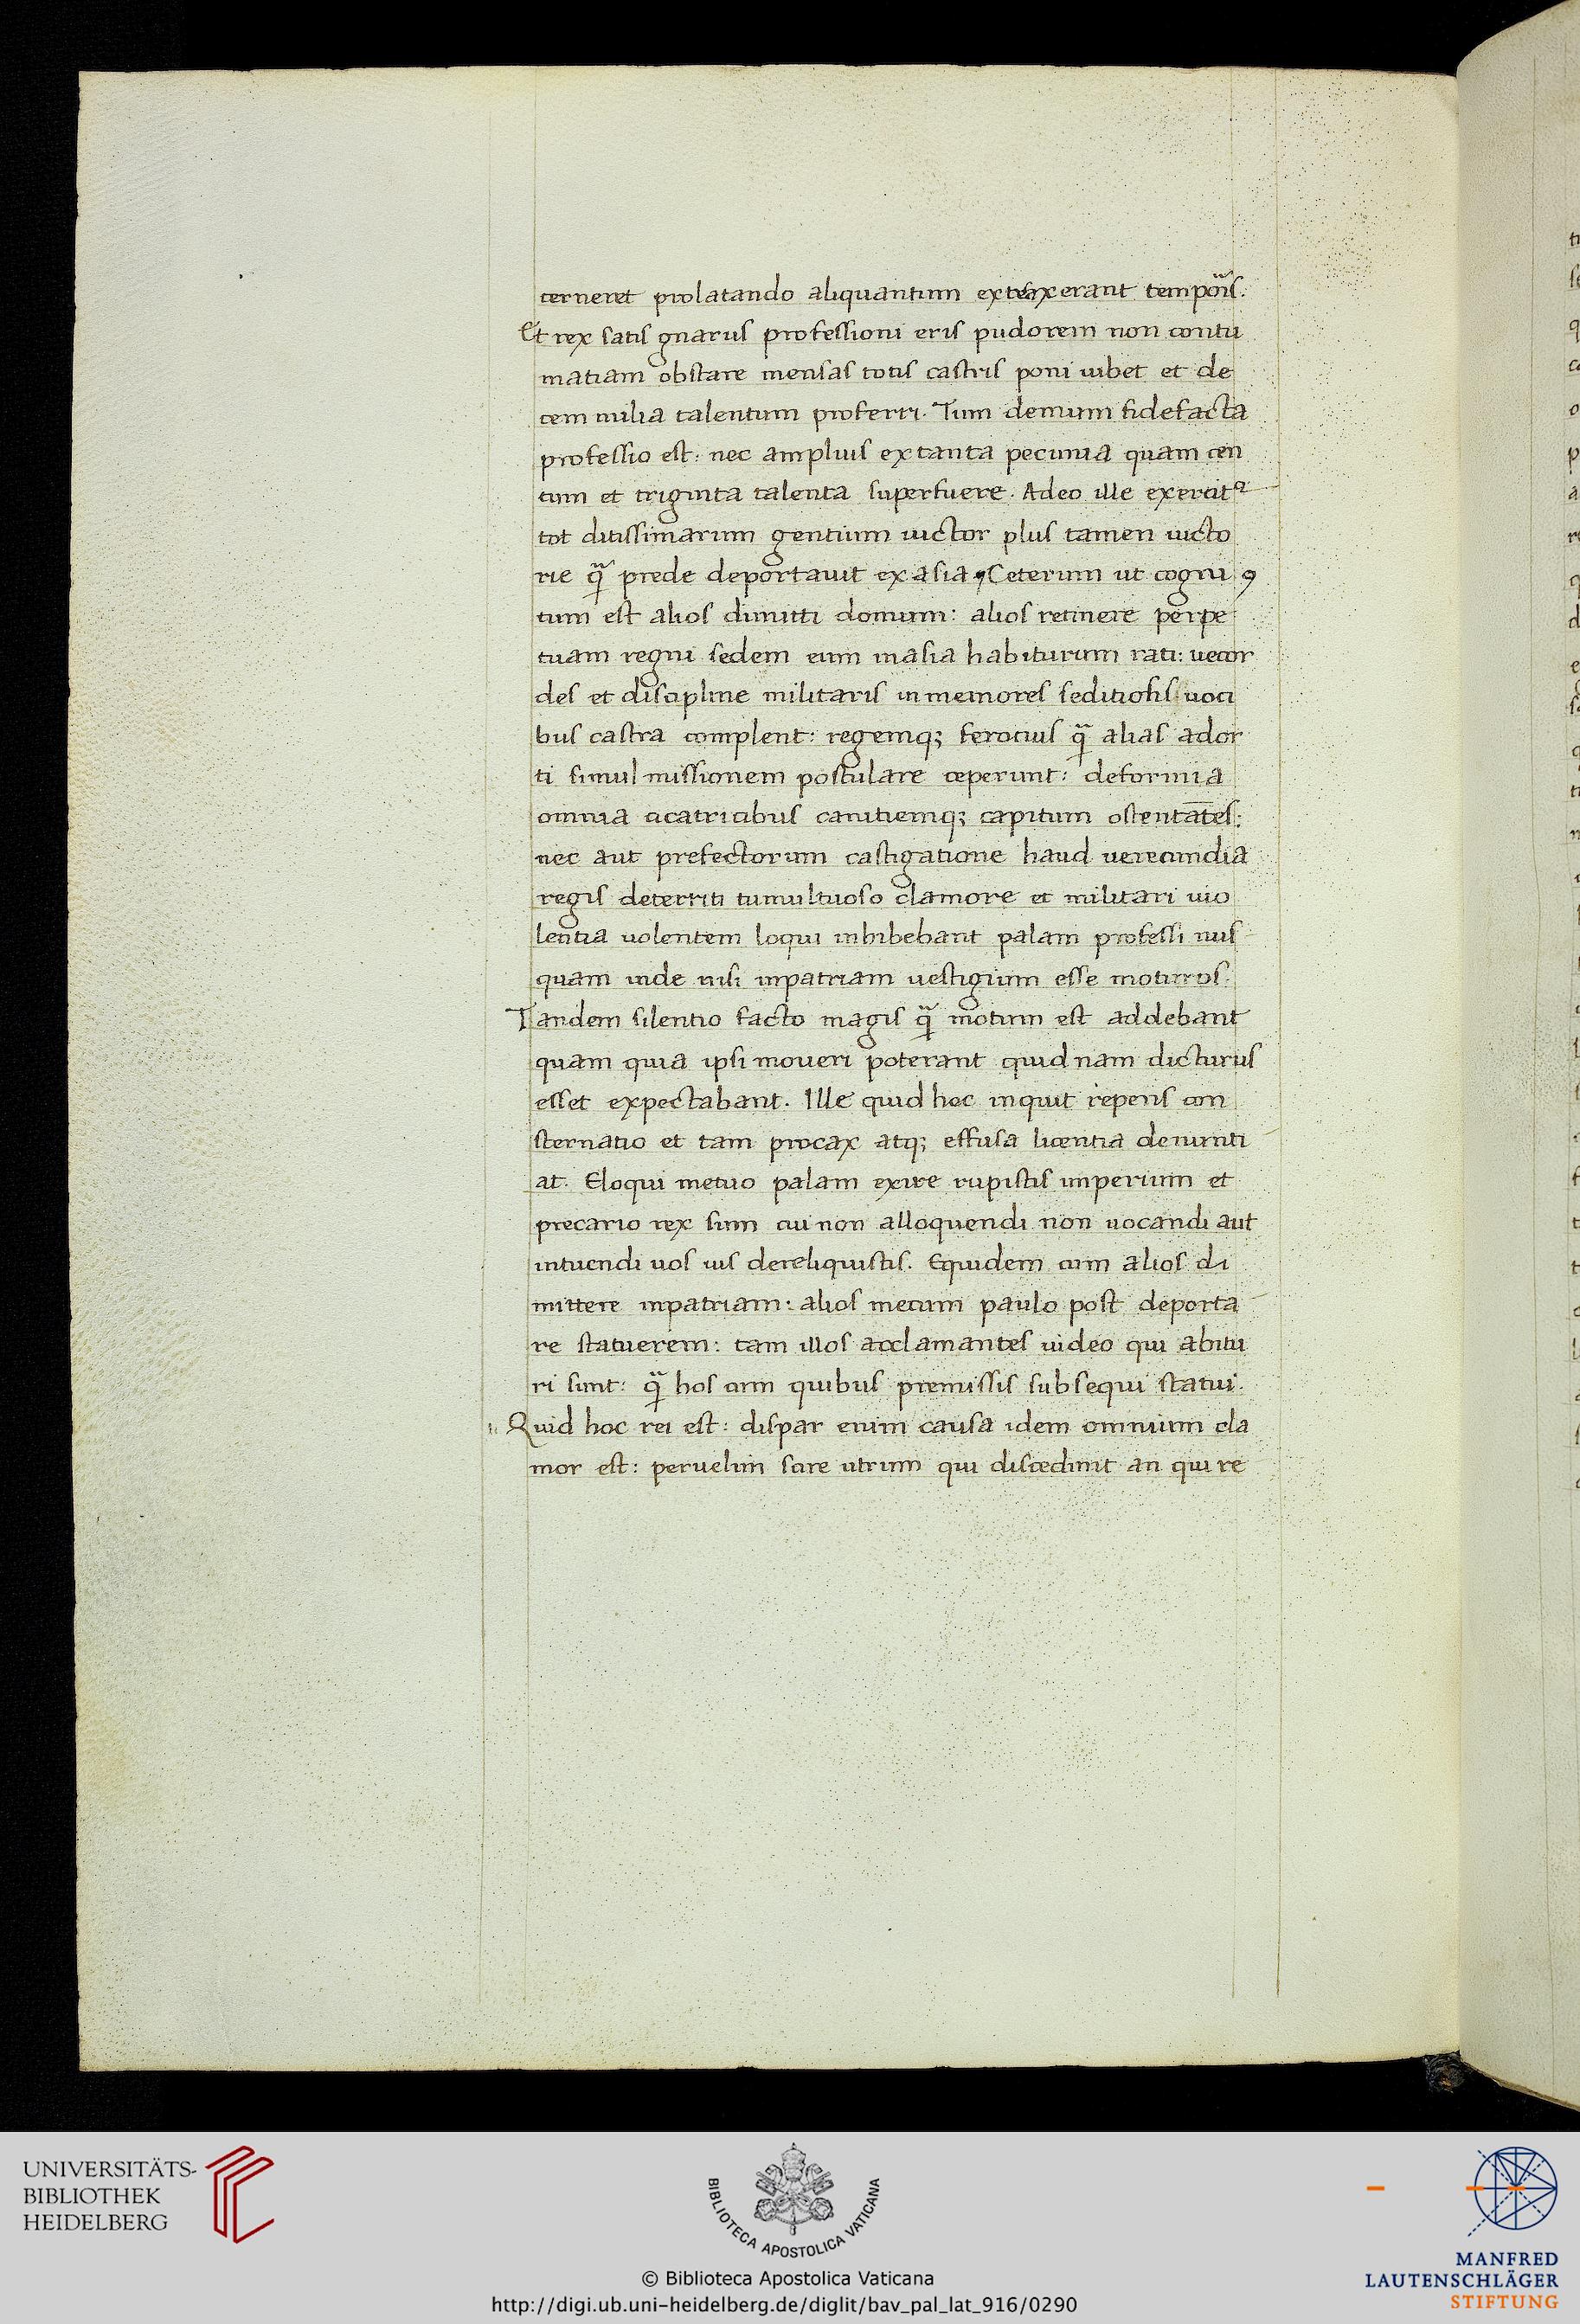 cerneret prolatando aliquantum extraxerant temporis.
Et rex satis gnarus professioni eris pudorem non contu
matiam obstare mensas totis castris poni iubet et de
cem milia talentum proferri. Tum demum fide facta
professio est: nec amplius ex tanta pecunia quam cen
tum et triginta talenta superfuere. Adeo ille exercit
tot ditissimarum gentium uictor plus tamen uicto
rie q̃ prede deportauit ex asia Ceterum ut cogni
tum est alios dimitti domum: alios retinere perpe
tuam regni sedem eum in asia habiturum rati: uecor
des et discipline militaris in memores seditiosis uoci
bus castra complent: regemq; ferocius q̃ alias ador
ti simul missionem postulare ceperunt: deformia
omnia cicatricibus canitiemq; capitum ostentātes:
nec aut prefectorum castigatione haud uerecundia
regis deterriti tumultuoso clamore et militari uio
lentia uolentem loqui inhibebant palam professi nus
quam inde nisi in patriam uestigium esse moturos.
Tandem silentio facto magis q̃ motum est addebant
quam quia ipsi moueri poterant quid nam dicturus
esset expectabant. Ille quid hec inquit repens con
sternatio et tam procax atq; effusa licentia denunti
at. Eloqui metuo palam exire rupistis imperium et
precario rex sum cui non alloquendi non uocandi aut
intuendi uos ius dereliquistis. Equidem cum alios di
mittere in patriam: alios mecum paulo post deporta
re statuerem: tam illos acclamantes uideo qui abitu
ri sunt: q̃ hos cum quibus premissis subsequi statui.
Quid hoc rei est: dispar enim causa idem omnium cla
mor est: peruelim scire utrum qui discedunt an qui re
UNIVERSITÄTS-
BIBLIOTHEK
HEIDELBERG
BIBLIOTECA APOSTOLICA VATICANA
© Biblioteca Apostolica Vaticana
http://digi.ub.uni-heidelberg.de/diglit/bav_pal_lat_916/0290
MANFRED
LAUTENSCHLÄGER
STIFTUNG